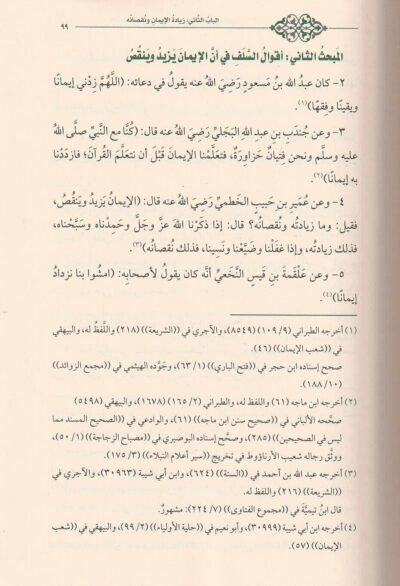 الباب الثاني: زيادة الإيمان ونقصانه
٩٩
المبحثُ الثاني: أقوالُ السَّلَفِ في أنَّ الإيمانَ يَزيدُ ويَنقُصُ
٢- كان عبدُ الله بنُ مَسعودٍ رَضِيَ اللهُ عنه يقولُ في دعائه: ((اللَّهُمَّ زِدْني إيمانًا
ويقينًا وفِقهًا))(١).
٣- وعن جُندَبِ بنِ عبدِ اللهِ البَجَليِّ رَضِيَ اللهُ عنه قال: ((كُنَّا مع النَّبيِّ صلَّى اللهُ
عليه وسلَّم ونحن فِتيانٌ حَزاوِرَةٌ، فتعَلَّمْنا الإيمانَ قَبْلَ أن نتعلَّمَ القُرآنَ؛ فازدَدْنا
به إيمانًا))(٢).
٤- وعن عُمَيرِ بنِ حَبيبٍ الخَطميِّ رَضِيَ اللهُ عنه قال: ((الإيمانُ يَزيدُ ويَنقُصُ،
فقيل: وما زيادتُه ونُقصانُه؟ قال: إذا ذكَرْنا اللهَ عزَّ وجَلَّ وحَمِدْناه وسَبَّحْناه،
فذلك زيادتُه، وإذا غفَلْنا وضَيَّعْنا ونَسِينا، فذلك نُقصانُه))(٣).
٥- وعن عَلْقَمةَ بنِ قَيسٍ النَّخَعيِّ أنَّه كان يقولُ لأصحابِه: ((امشُوا بنا نزدادُ
إيمانًا))(٤).
(١) أخرجه الطبراني (٩/ ١٠٩) (٨٥٤٩)، والآجري في ((الشريعة)) (٢١٨) واللَّفظُ له، والبيهقي
في ((شعب الإيمان)) (٤٦).
صحح إسناده ابن حجر في ((فتح الباري)) (١/ ٦٣)، وجَوَّده الهيثمي في ((مجمع الزوائد))
(١٠/ ١٨٨).
(٢) أخرجه ابن ماجه (٦١) واللفظ له، والطبراني (٢/ ١٦٥) (١٦٧٨)، والبيهقي (٥٤٩٨)
صحَّحه الألباني في ((صحيح سنن ابن ماجه)) (٦١)، والوادعي في ((الصحيح المسند مما
ليس في الصحيحين)) (٢٨٥)، وصحَّح إسناده البوصيري في ((مصباح الزجاجة)) (١/ ٥٠)،
ووثَّق رجاله شعيب الأرناؤوط في تخريج ((سير أعلام النبلاء)) (٣/ ١٧٥).
(٣) أخرجه عبد الله بن أحمد في ((السنة)) (٦٢٤)، وابن أبي شيبة (٣٠٩٦٣)، والآجري في
((الشريعة)) (٢١٦) واللفظ له.
قال ابنُ تيميَّةَ في ((مجموع الفتاوى)) (٧/ ٢٢٤): مشهورٌ.
(٤) أخرجه ابن أبي شيبة (٣٠٩٩٩)، وأبو نعيم في ((حلية الأولياء)) (٢/ ٩٩)، والبيهقي في ((شعب
الإيمان)) (٥٧).